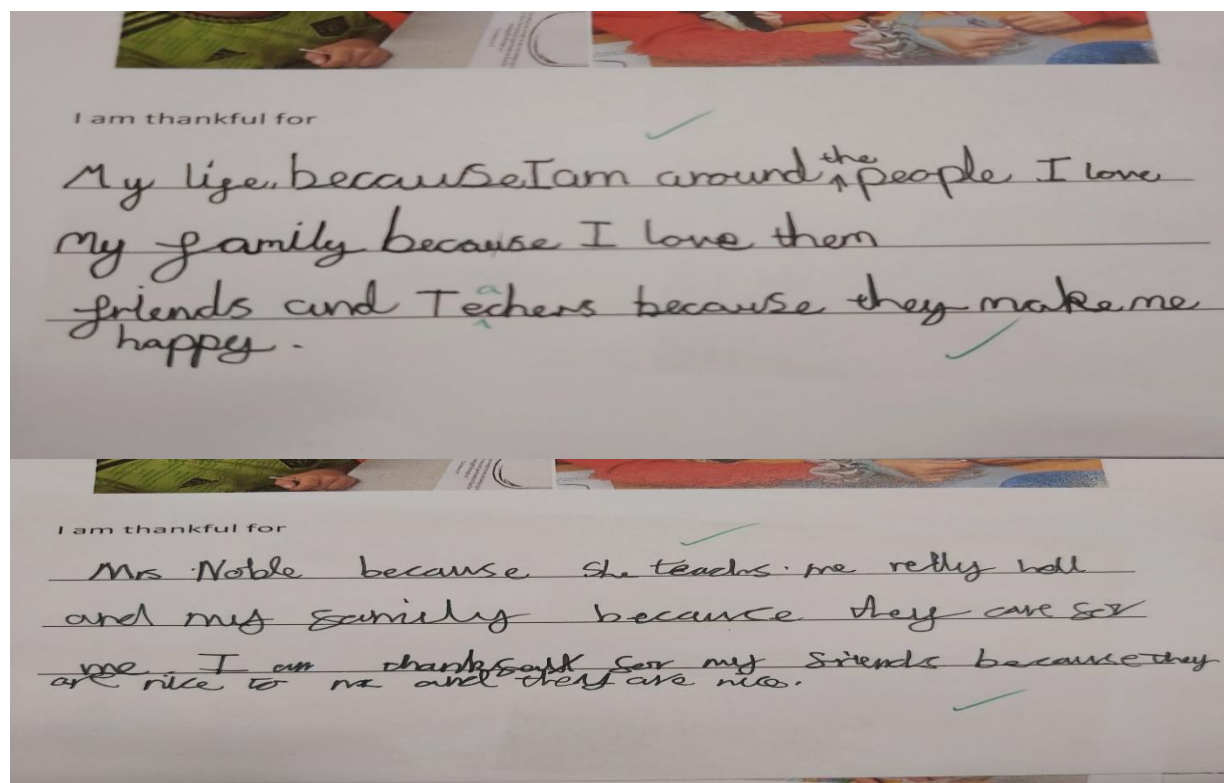 I am thankful for
My life, because I am around the people I love
My family because I love them
friends and Teachers because they make me
happy.
I am thankful for
Mrs Noble because she teachs me relly well
and my family because they care for
me. I am thankfull for my friends because they
are nice to me and they are nice.